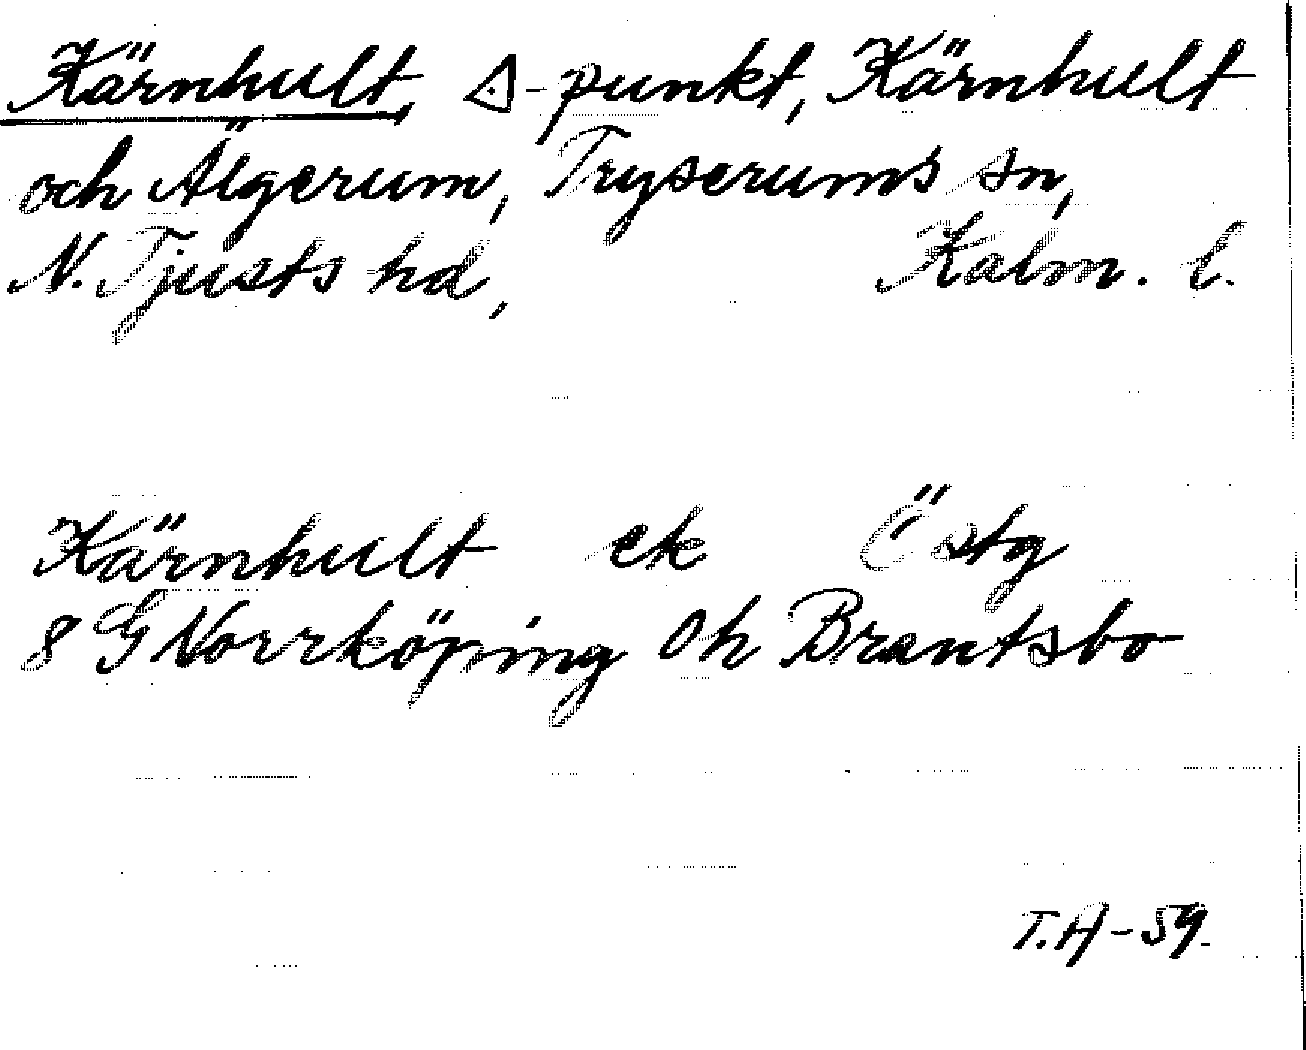 Kärnhult, △-punkt, Kärnhult
och Älgerum, Tryserums sn,
N. Tjusts hd, Kalm. l.
Kärnhult ek Östg
8 G Norrköping 0h Brantsbo
T.A-59.